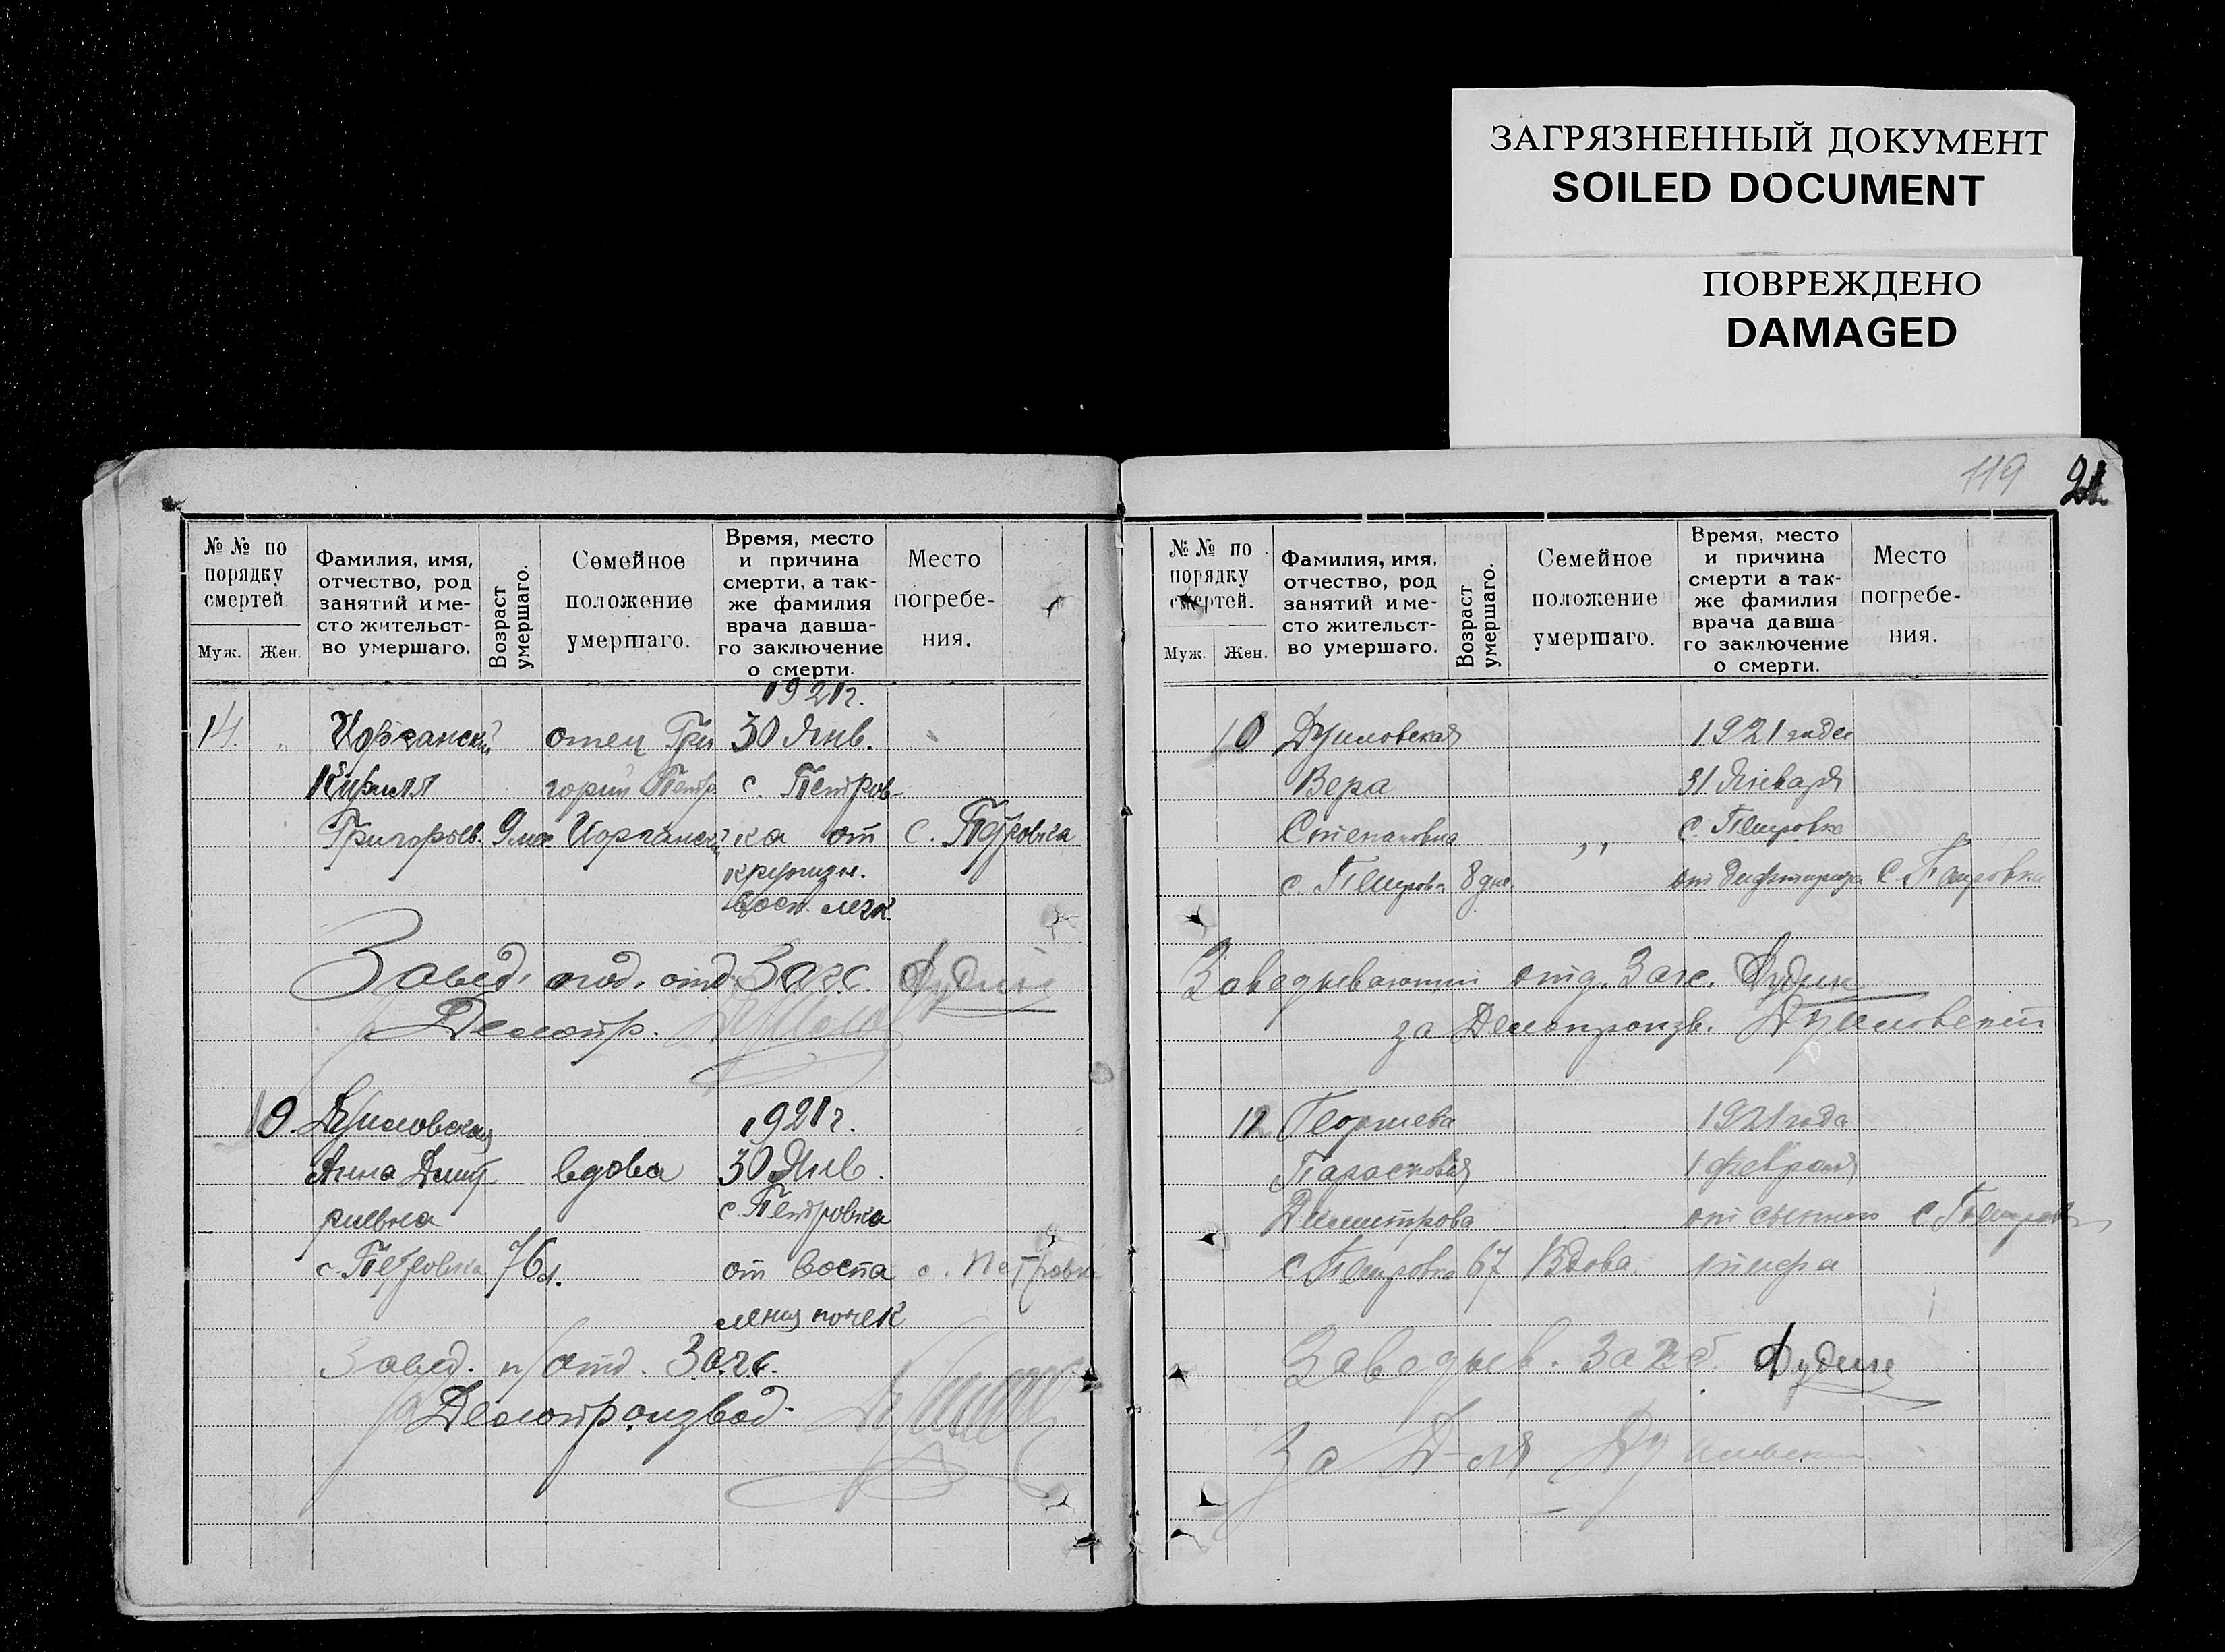 ЗАГРЯЗНЕННЫЙ ДОКУМЕНТ
SOILED DOCUMENT
ПОВРЕЖДЕНО
DAMAGED
№ № по порядку смертей
Муж. Жен.
Фамилия, имя, отчество, род занятий и место жительство умершаго.
Возраст умершаго.
Семейное положение умершаго.
Время, место и причина смерти, а также фамилия врача давшаго заключение о смерти.
Место погребения.
1921г.
14. " отец Гри 30 Янв.
Кирилл горий Петр с. Петров-
Григорьев. 9 мес ка от с. Петровка
крупозн.
восп. легк.
Завед. под. отд. Загс.
Делопр.
10. Думовская 1921г.
Анна Дмит- вдова 30 Янв.
риевна с. Петровка
с. Петровка 76 л. от воспа с. Петровка
ления почек
Завед. п/отд. Загс.
за Делопроизвод.
119 21
№ № по порядку смертей.
Муж. Жен.
Фамилия, имя, отчество, род занятий и место жительство умершаго.
Возраст умершаго.
Семейное положение умершаго.
Время, место и причина смерти а также фамилия врача давшаго заключение о смерти.
Место погребения.
10 Думовская 1921 года
Вера 31 Января
Степановна " с. Петровка
с. Петровк 8 дне. от дифтерита с. Петровка
Заведывающий отд. Загс.
за Делопроизв. Думовский
12 Георгиева 1921 года
Парасковия 1 февраля
Димитрова от сыпного с. Петровка
с. Петровка 67 Вдова тифа
Заведыв. Загс.
За Д-ля Думовский